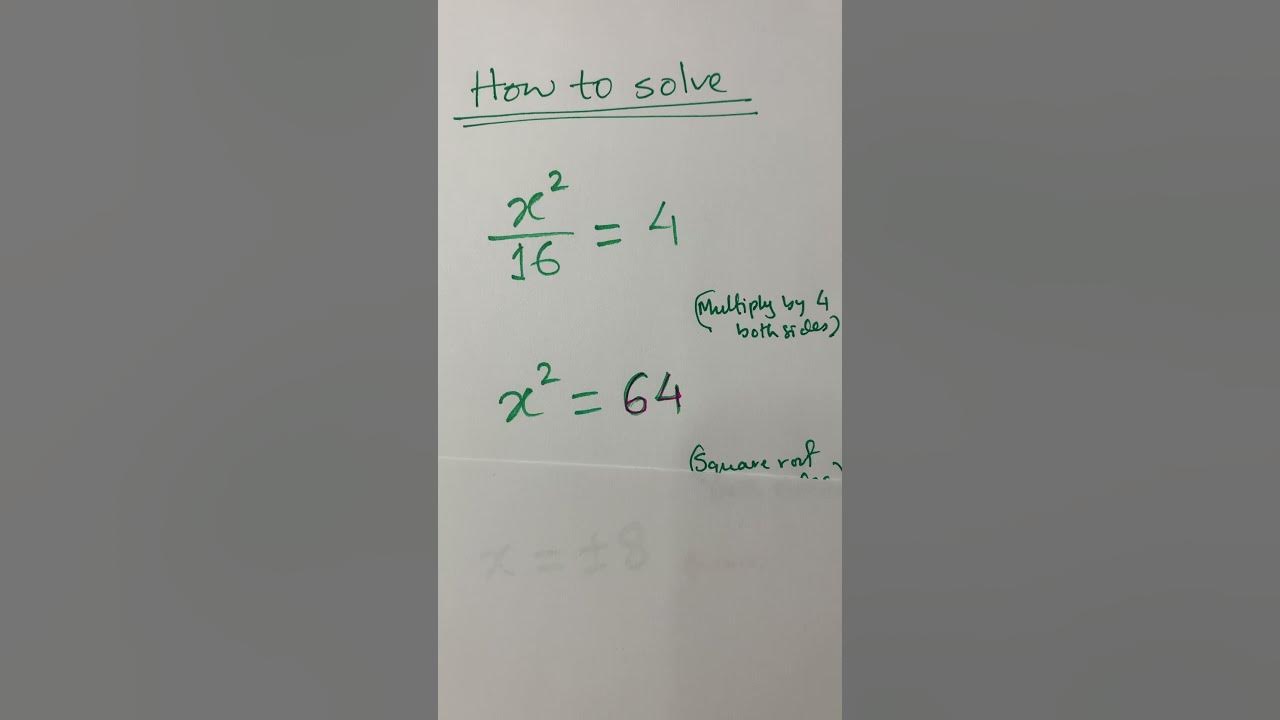 How to solve
x²/16 = 4
(Multiply by 4
both sides)
x² = 64
(Square root
x = ±8